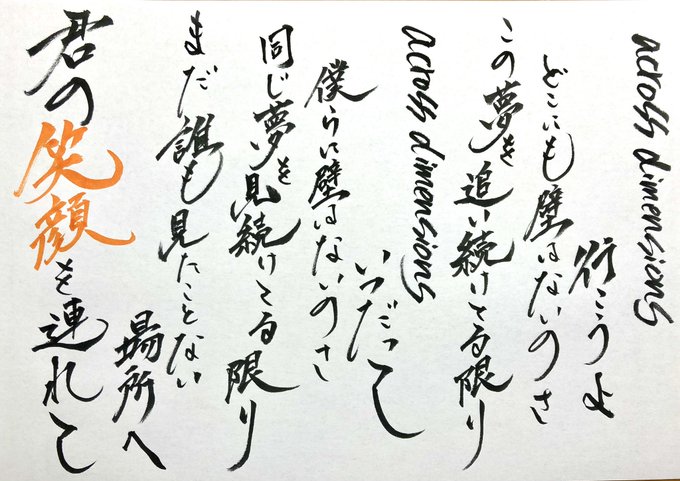 across dimensions
行こうよ
どこにも壁はないのさ
この夢を追い続けてる限り
across dimensions
いつだって
僕らに壁はないのさ
同じ夢を見続けてる限り
まだ誰も見たことない
場所へ
君の笑顔を連れて